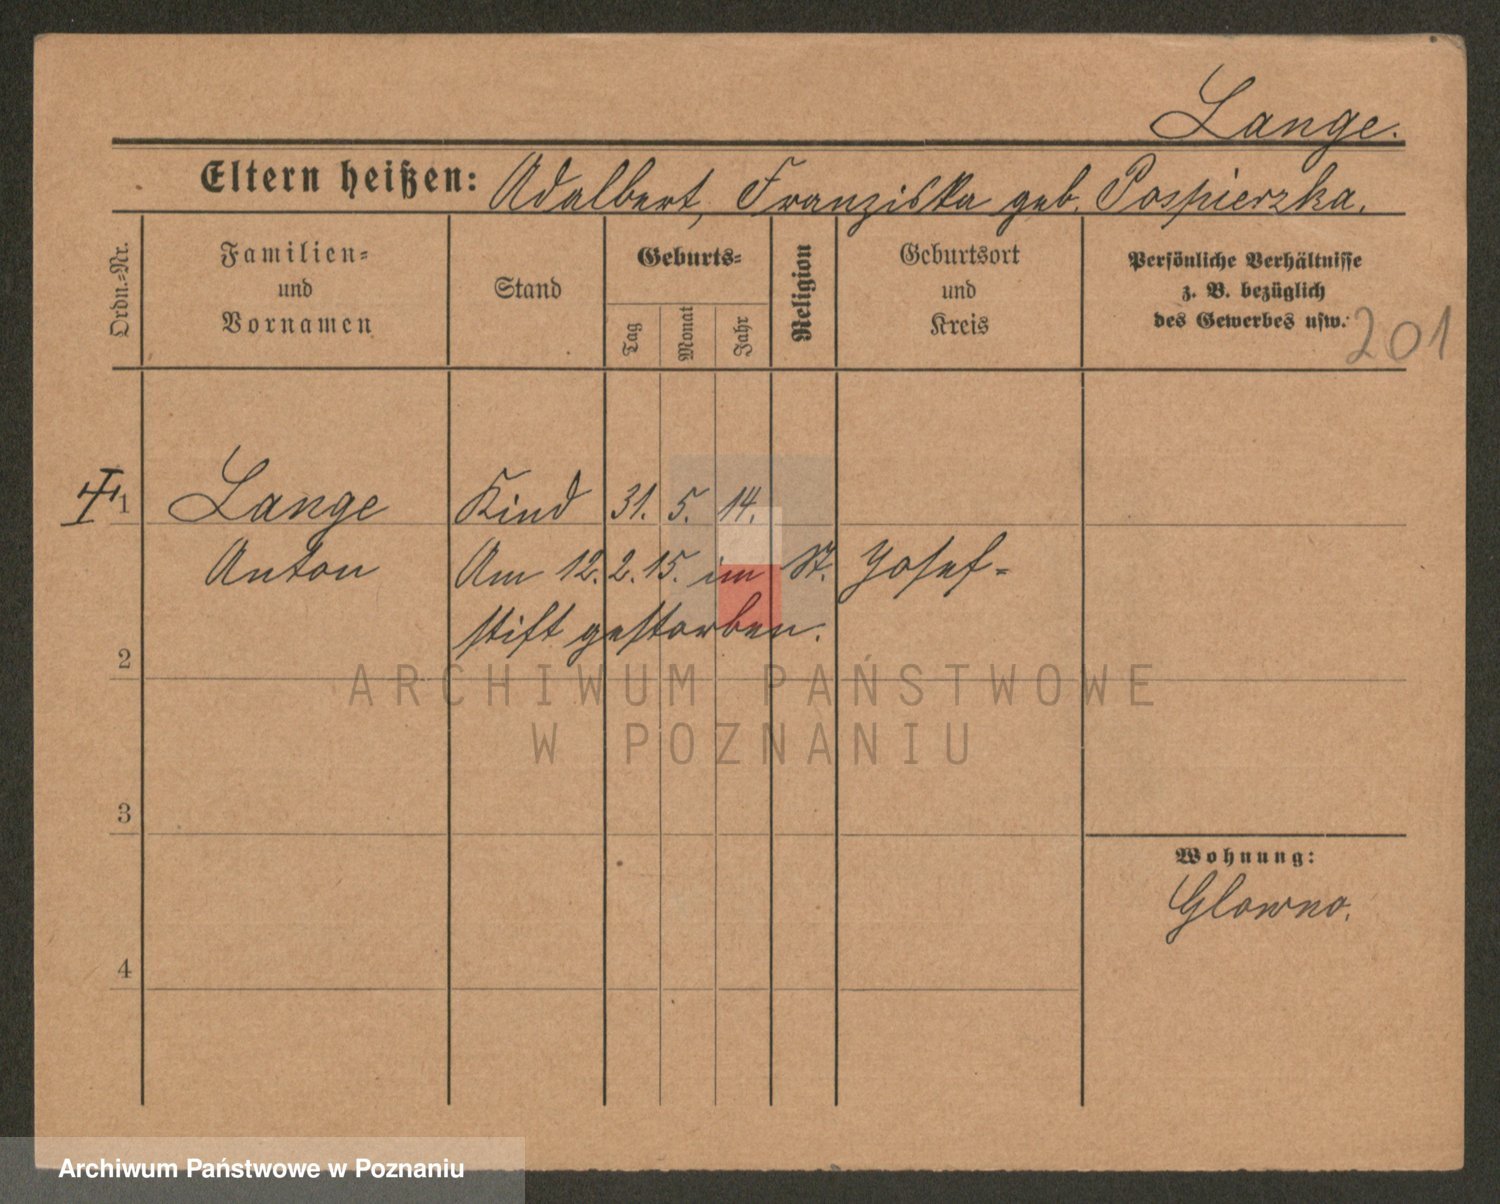 Lange.
Eltern heißen: Adalbert, Franziska geb. Pospierzka.
Ordn.-Nr.
Familien- und Vornamen
Stand
Geburts-
Tag
Monat
Jahr
Religion
Geburtsort und Kreis
Persönliche Verhältnisse
z. B. bezüglich
des Gewerbes usw.
201
1 Lange Kind 31. 5. 14.
Anton Am 12. 2. 15. im St. Josef-
stift gestorben.
2
3
4
Wohnung:
Glowno.
ARCHIWUM PAŃSTWOWE
W POZNANIU
Archiwum Państwowe w Poznaniu